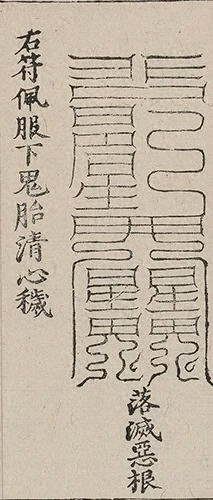 落滅惡根
右符佩服下鬼胎清心穢